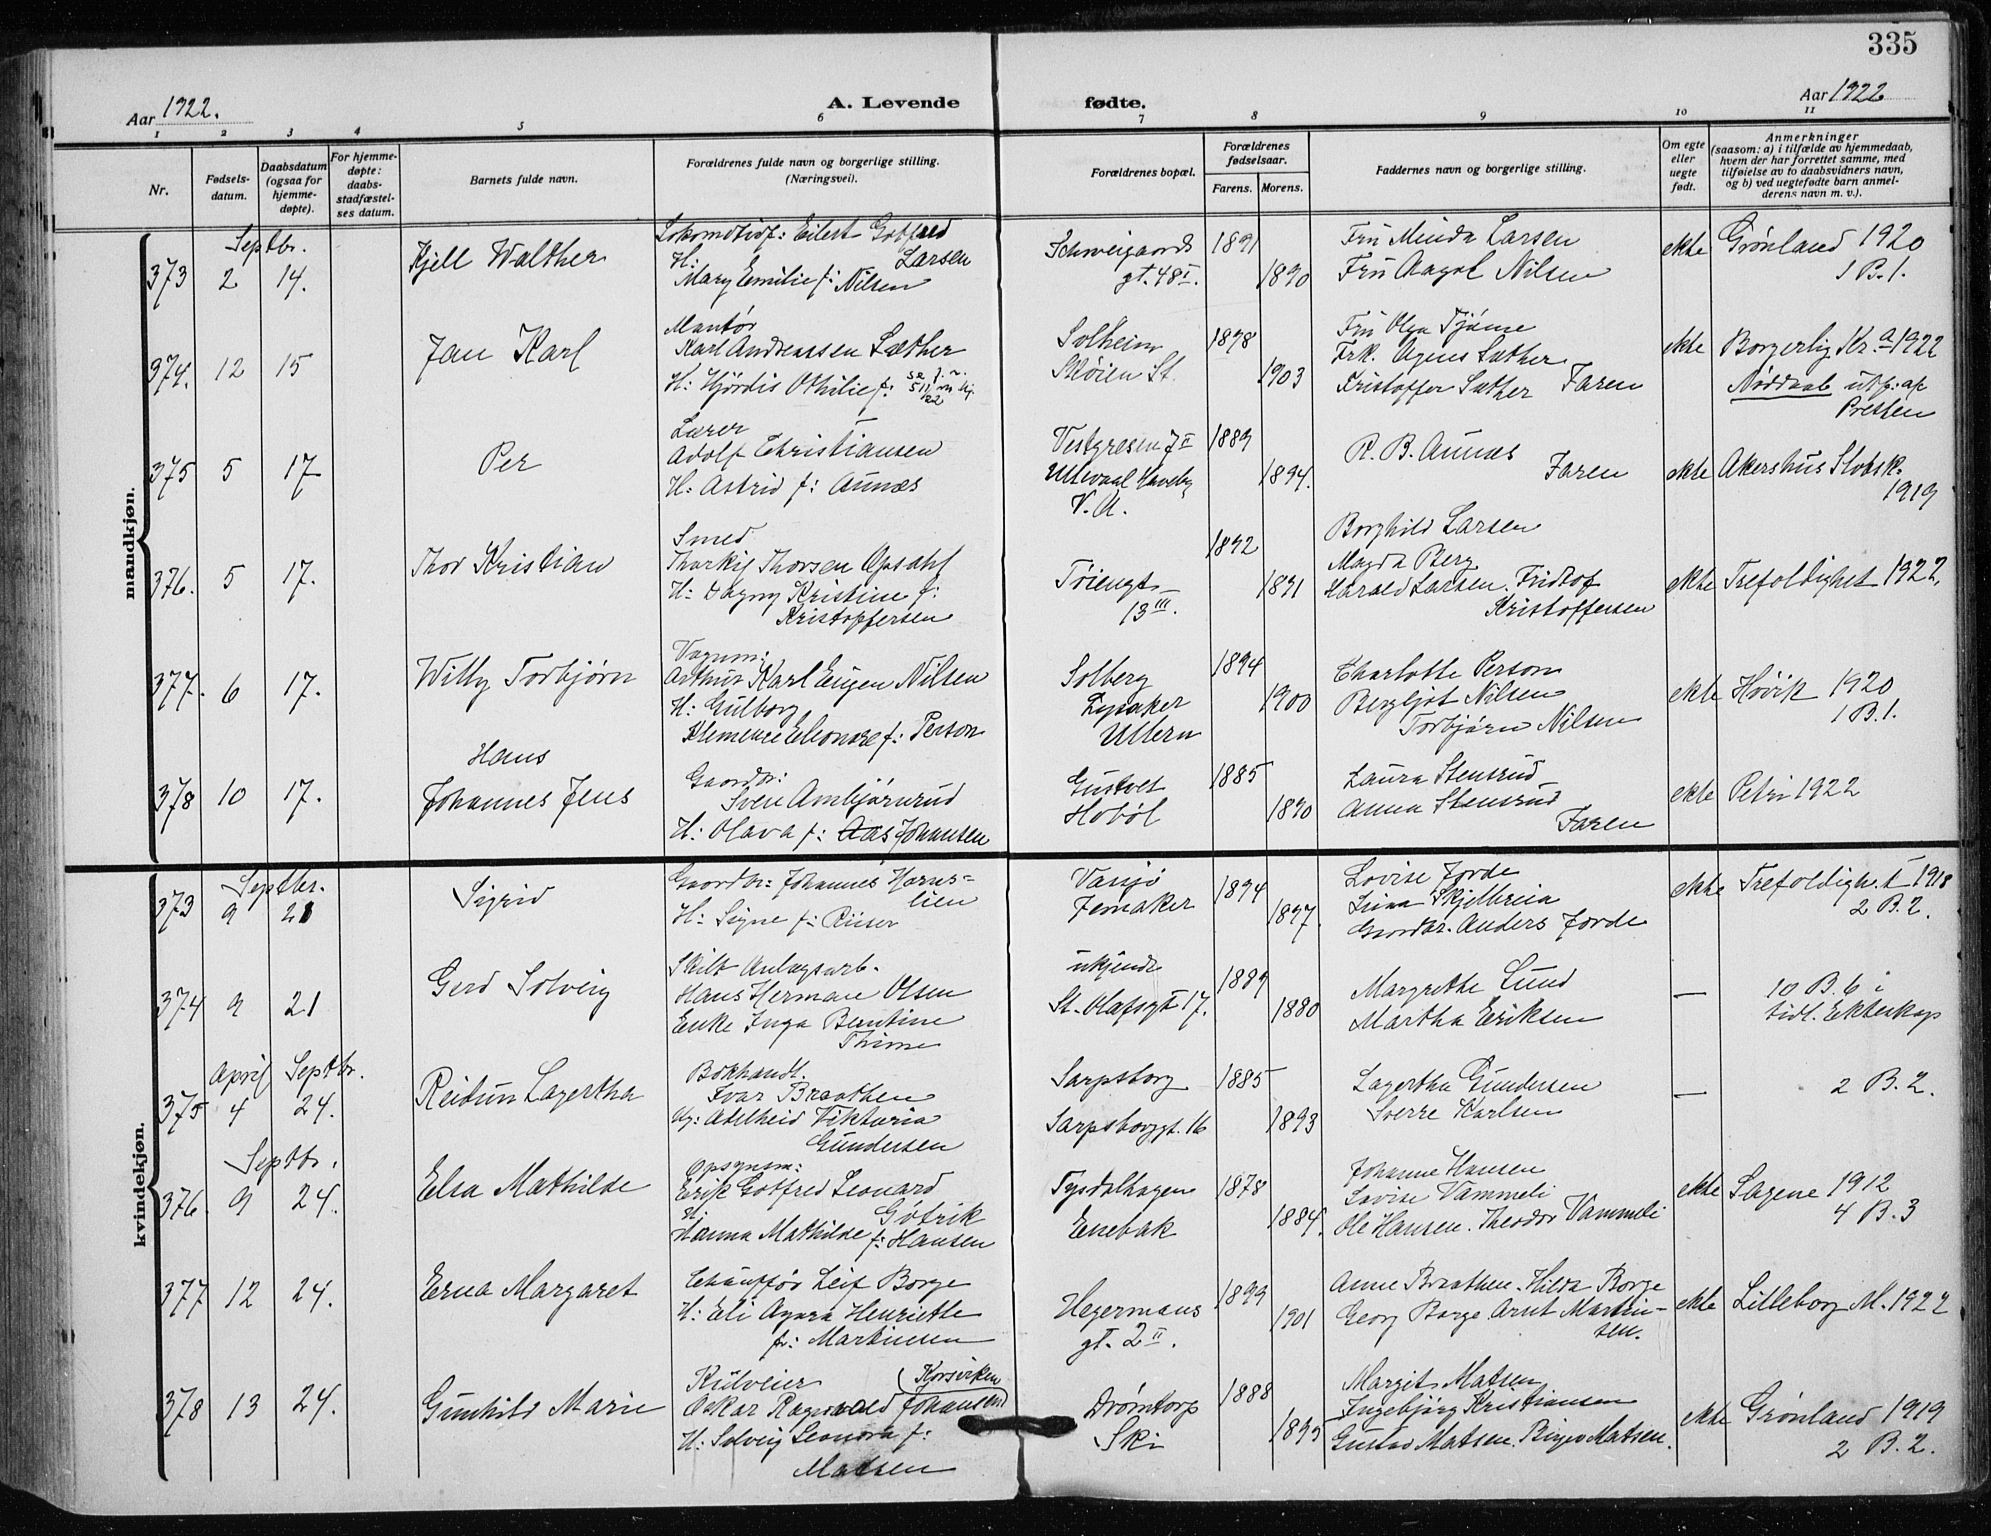 335
Aar 1922.
A. Levende fødte.
Aar 1922
1 2 3 4 5 6 7 8 9 10 11
Nr.
Fødsels-
datum.
Daabsdatum
(ogsaa for
hjemme-
døpte).
For hjemme-
døpte:
daabs-
stadfæstel-
ses datum.
Barnets fulde navn.
Forældrenes fulde navn og borgerlige stilling.
(Næringsvei).
Forældrenes bopæl.
Forældrenes
fødselsaar.
Farens. Morens.
Faddernes navn og borgerlige stilling.
Om egte
eller
uegte
født.
Anmerkninger
(saasom: a) i tilfælde av hjemmedaab,
hvem der har forrettet samme, med
tilføielse av to daabsvidners navn,
og b) ved uegtefødte barn anmel-
derens navn m. v.).
mandkjøn.
Septbr.
373 2 14.
Kjell Walther
Lokomotivf: Eilert Gotfred
Larsen
H:
Mary Emilie f: Nilsen
Schweigaards
gt. 48 I.
1891
1890
Fru Minda Larsen
Fru Aagot Nilsen
ekte
Grønland 1920
1 B. 1.
374. 12 15
Jan Karl
Montør
Karl Andreassen Sæther
H: Hjørdis Othilie f:
Solheim
Sløien St.
1898
1903
Fru Olga Tjøme
Frk. Agnes Sæther
Kristoffer Sæther Faren
ekte
Borgerlig Kr.a 1922
Nøddaab utf. av
Presten
375 5 17
Per
Lærer
Adolf Christiansen
H: Astrid f: Aunæs
Vestgresen 7 II
Ullevaal Haveby
V. A.
1889
1894.
R. B. Aunæs
Faren
ekte
Akershus Slotsk.
1919
376. 5 17.
Thor Kristian
Smed
Thorkil Thorsen Opsahl
H: Dagny Kristine f:
Kristoffersen
Tøiengt.
13 III.
1892
1891
Borghild Larsen
Magda Berg
Harald Larsen. Fridtof
Kristoffersen
ekte
Trefoldighet 1922.
377. 6 17.
Willy Torbjørn
Vognm:
Arthur Karl Eugen Nilsen
H: Gulborg
Klemence Eleonore f: Person
Solberg
Lysaker
Ullern
1894
1900
Charlotte Person
Bergljot Nilsen
Torbjørn Nilsen
ekte
Høvik 1920
1 B. 1.
378 10 17.
Hans
Johannes Jens
Gaardbr:
Sven Ambjørnrud
H: Olava f: Aas Johansen
Gustvet
Hobøl
1885
1890
Laura Stensrud
Anna Stensrud
Faren
ekte
Petri 1922
kvindekjøn.
Septbr.
373 9 21
Sigrid
Gaardbr: Johannes Hornes-
lien
H: Signe f: Riiser
Vansjø
Jemaker
1894
1897.
Lovise Jorde
Skjelbreia
Gaardbr. Anders Jorde
ekte
Trefoldighet 1918
2 B. 2.
374 9 21
Gerd Solveig
Skilt Anlægsarb.
Hans Herman Olsen
Enke Inga Berntine
Thime
ukjendt
St. Olafsgt 17.
1889
1880
Margrethe Lund
Martha Eriksen
—
10 B. 6 i
tidl. Ekteskap
April Septbr.
375 4 24.
Reidun Lagertha
Bokhandl.
Ivar Braathen
Ug: Adelheid Viktoria
Gundersen
Sarpsborg
Sarpsborggt. 16
1885
1893
Lagertha Gundersen
Sverre Karlsen
—
2 B. 2.
Septbr.
376. 9 24.
Elsa Mathilde
Opsynsm:
Erik Gotfred Leonard
Gøtrik
H:
Hanna Mathilde f: Hansen
Tysdalhagen
Enebak
1878
1884.
Johanne Hansen
Lovise Vammeli
Ole Hansen. Theodor Vammeli
ekte
Sagene 1912
4 B. 3
377 12 24.
Erna Margaret
Chauffør Leif Borge
H: Eli Agnora Henriette
f: Martinsen
Hegermans
gt. 2 II.
1899
1901
Anne Braathen. Hilda Borge
Georg Borge. Arnt Martin-
sen.
ekte
Lilleborg M. 1922
378 13 24.
Gunhild Marie
Kulveier (Korsviken
Oskar Ragnvald Johansen)
H: Solveig Leonora f:
Matsen
Drømtorp
Ski
1888
1895
Margit Matsen
Ingebjørg Kristiansen
Gustav Matsen. Birger Matsen.
ekte
Grønland 1919
2 B. 2.